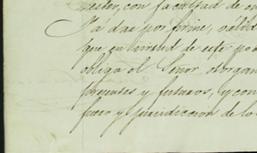 testen, con facultad de
Yá das por firme, válid
que en virtud de este po
obliga el Señor otorgan
presentes y futuros, y con
fuero y jurisdiccion de lo